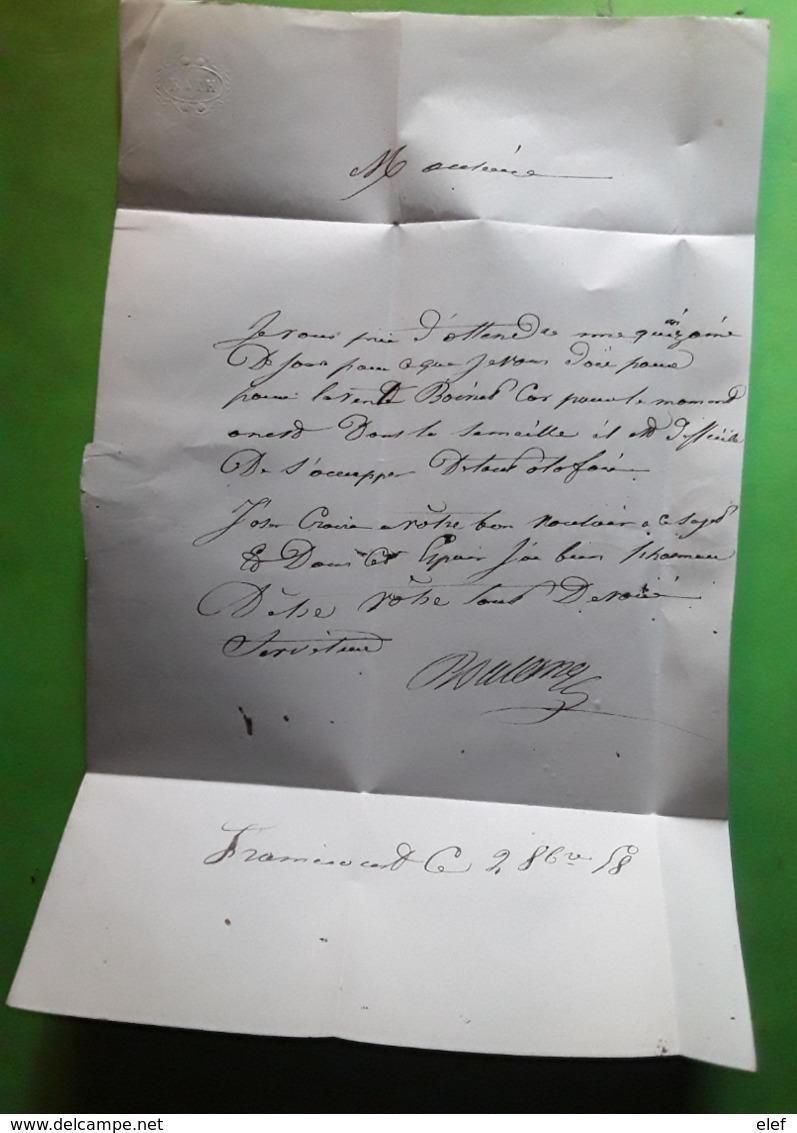 BATH
Monsieur
Je vous prie d'attendre une quinzaine
De jour pour ce que Je vous dois pour
pour la vente Boinet Car pour le moment
on est Dans la Semaille il est difficile
De s'occupper De tout
J'ose Croire a votre bon vouloir a ce Sujet
Et Dans Cet Espoir J'ai bien l'honneur
D'être votre tout Devoué
Serviteur
Boulang
Le 2 8bre 58
delcampe.net
elef